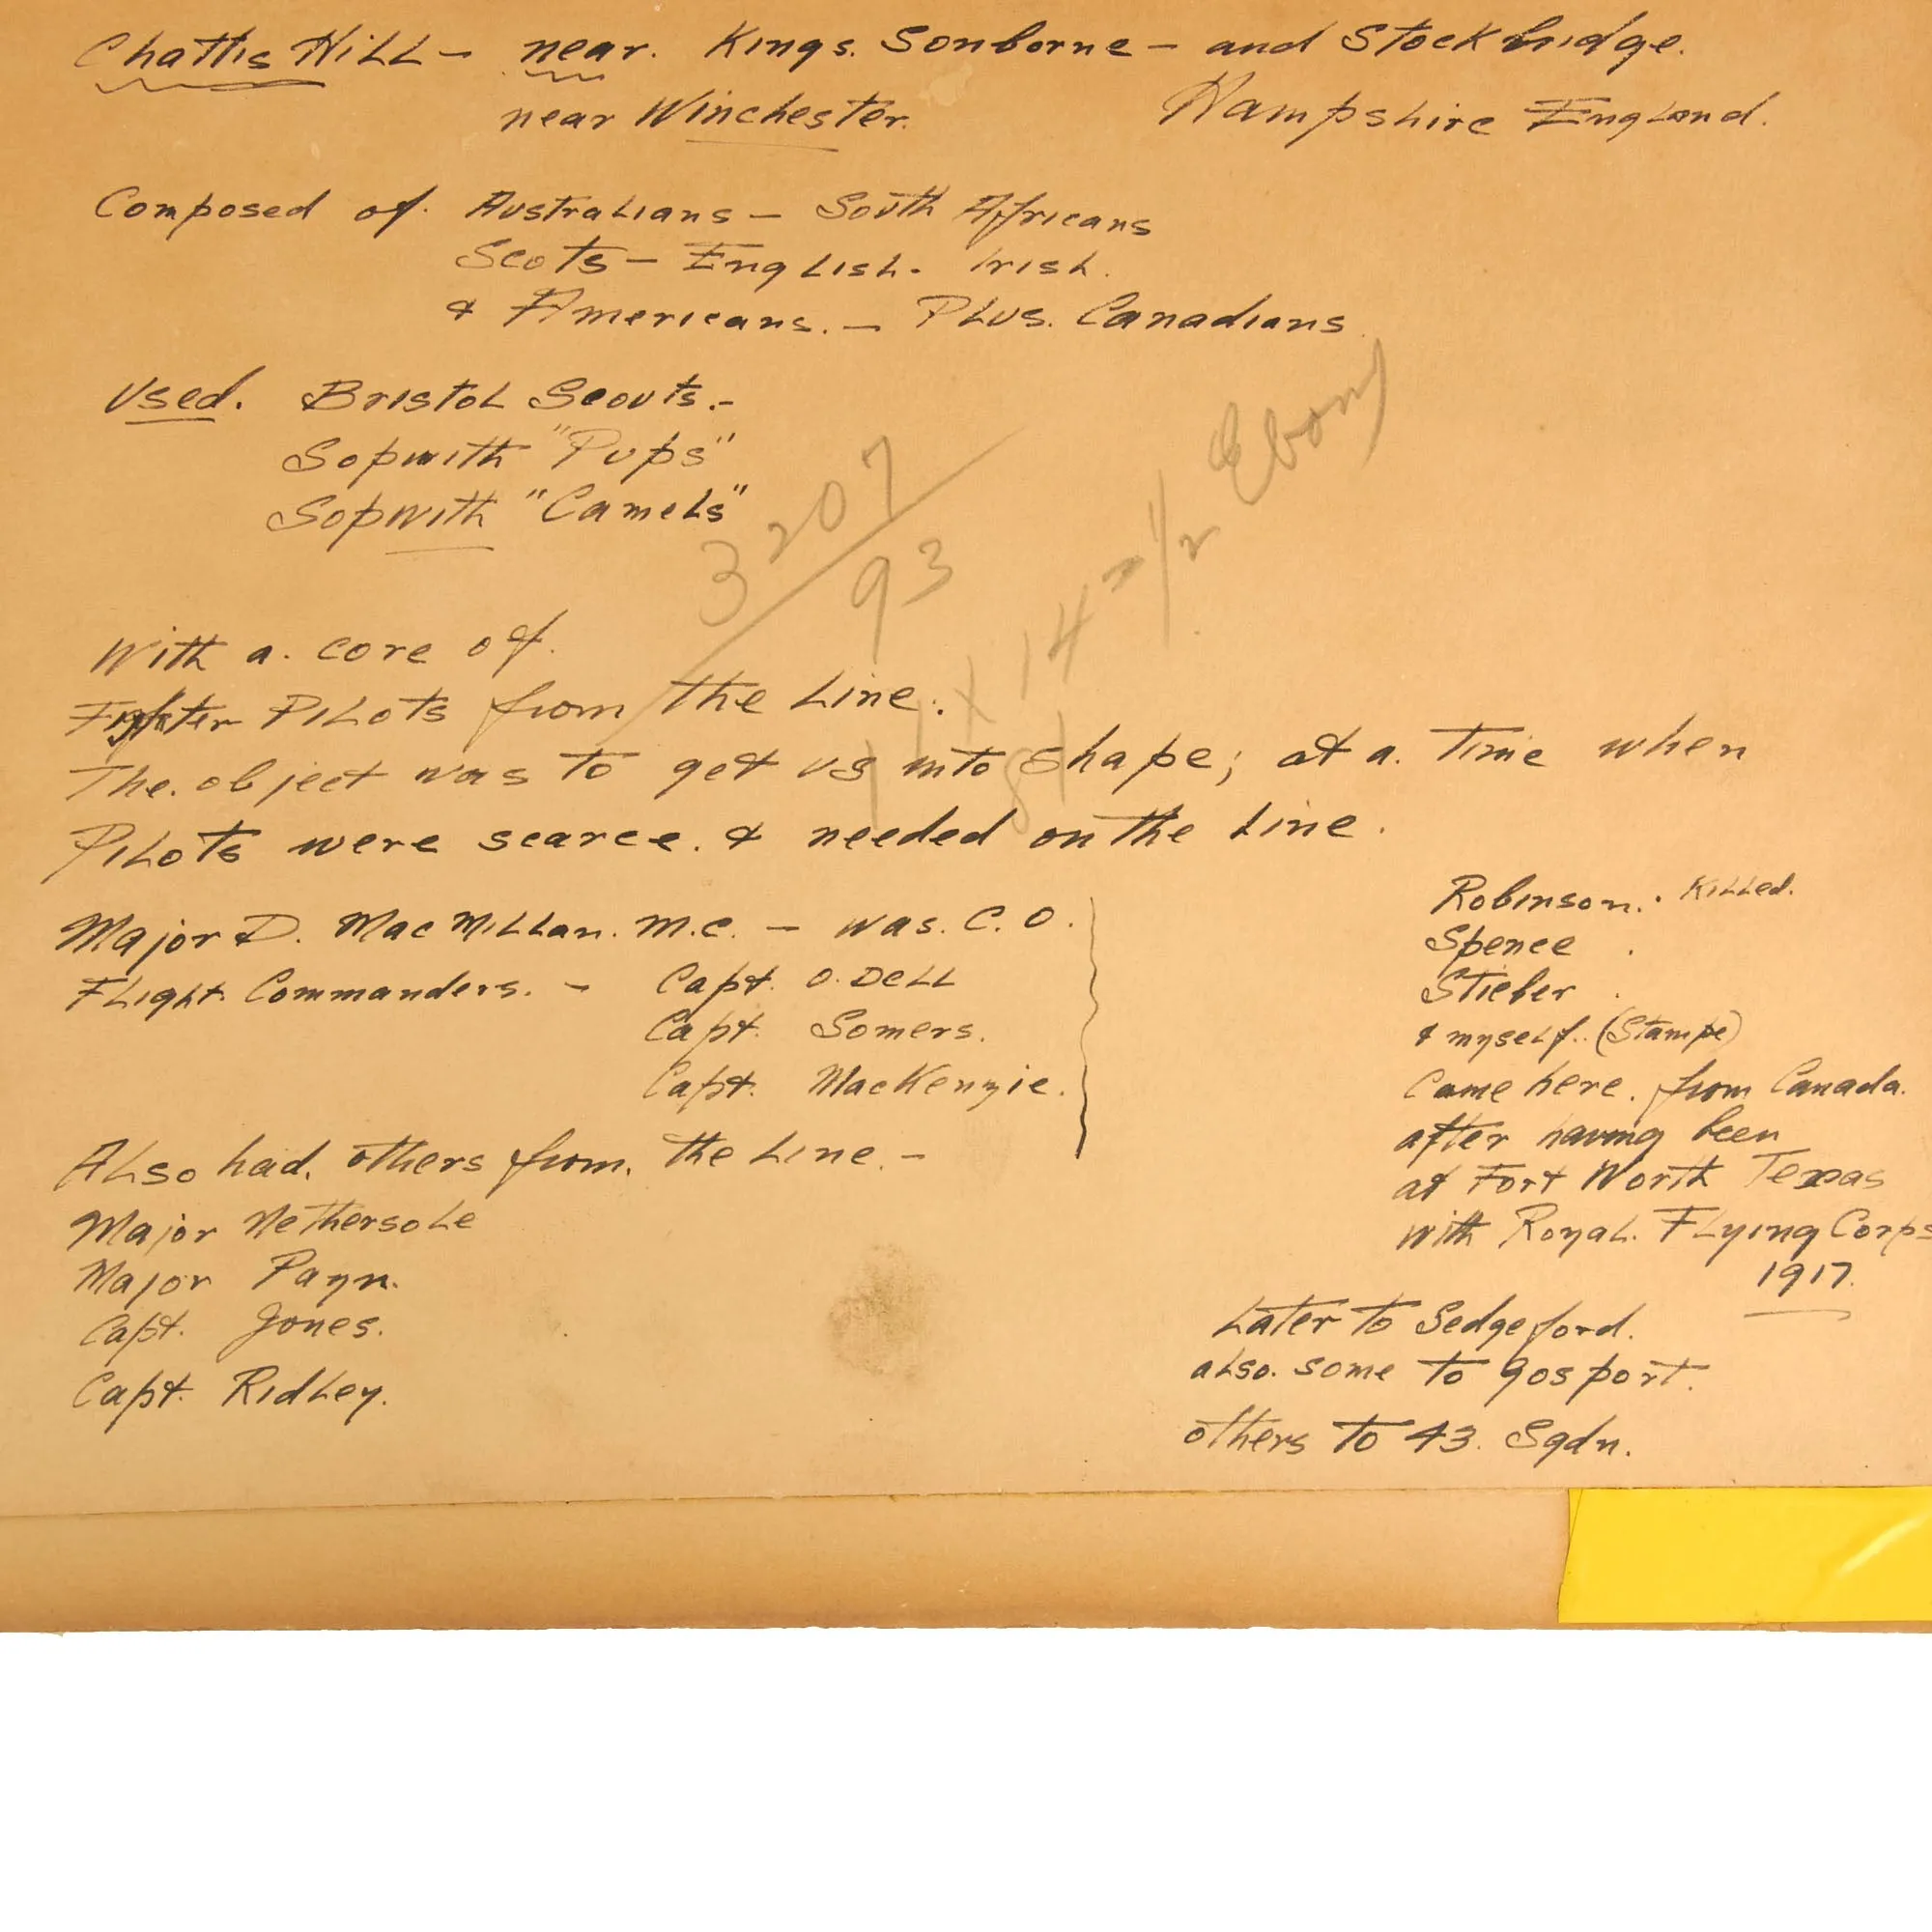 Chattis Hill - near. Kings. Sonborne - and Stockbridge.
near Winchester. Hampshire England.
Composed of. Australians - South Africans
Scots - English. Irish.
& Americans. - Plus. Canadians.
Used. Bristol Scouts.-
Sopwith "Pups"
Sopwith "Camels"
3207/93
14 1/2 Ebony
With a. core of.
Fighter Pilots from the Line.
The. object was to get us into shape; at a. time when
Pilots were scarce. & needed on the Line.
Major D. MacMillan. M.C. - was. C.O.
Flight Commanders. - Capt. O.Dell
Capt. Somers.
Capt. MacKenzie.
Also had. others from. the Line. -
Major Nethersole
Major Payn.
Capt. Jones.
Capt. Ridley.
Robinson. . Killed.
Spence .
Stieber .
& myself.. (Stampe)
Came here. from Canada.
after having been
at Fort Worth Texas
with Royal. Flying Corps
1917.
Later to Sedgeford.
also. some to Gosport.
others to 43. Sqdn.